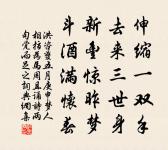 伸缩一双手
去来三世身
新丰惊昨梦
斗酒满怀春
洪咨夔五月庚申梦人
相招为马周且诵诗两
句觉而足之词典